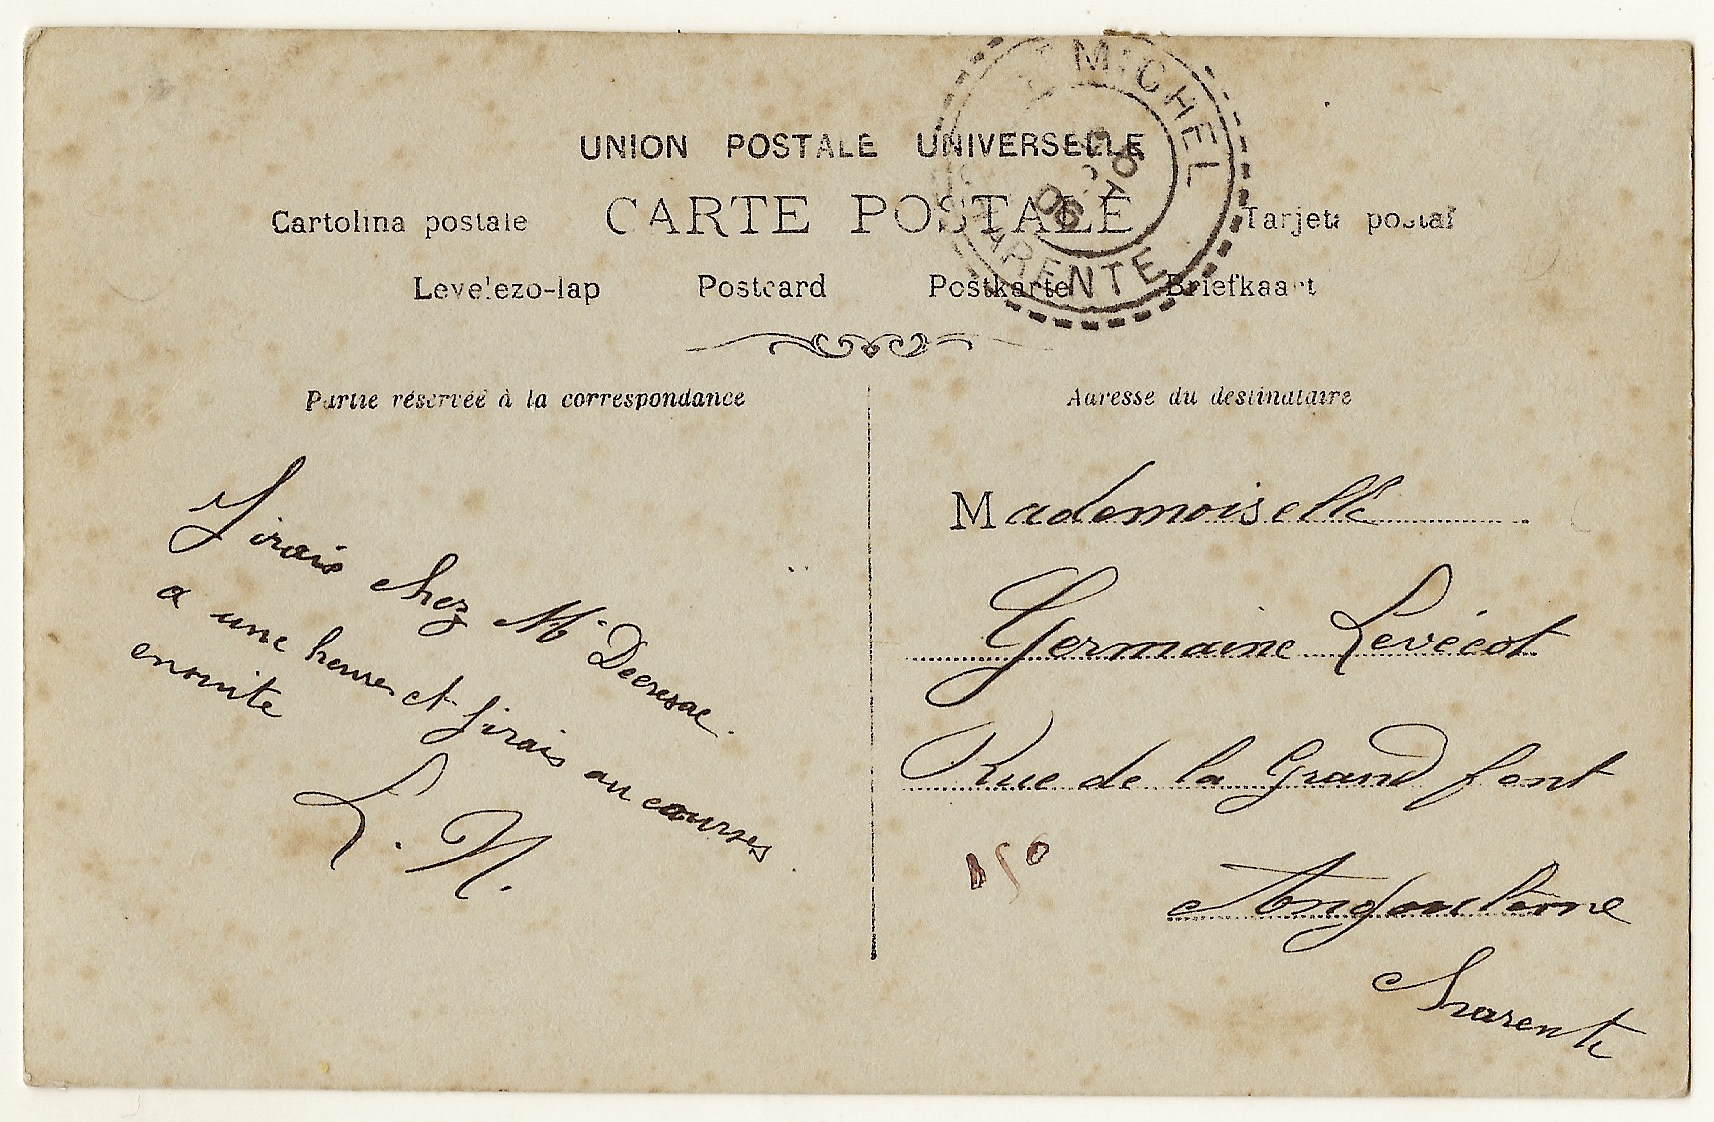 UNION POSTALE UNIVERSELLE
CARTE POSTALE
Cartolina postale
Tarjeta postal
Levelezo-lap Postcard Postkarte Briefkaart
MICHEL
CHARENTE
06
Partie réservée à la correspondance
J'irais chez Mr
a une heures et j'irais au courses
ensuite
L. N.
Adresse du destinataire
Mademoiselle
Germaine Levécot
Rue de la Grand font
Angoulème
Charente
150